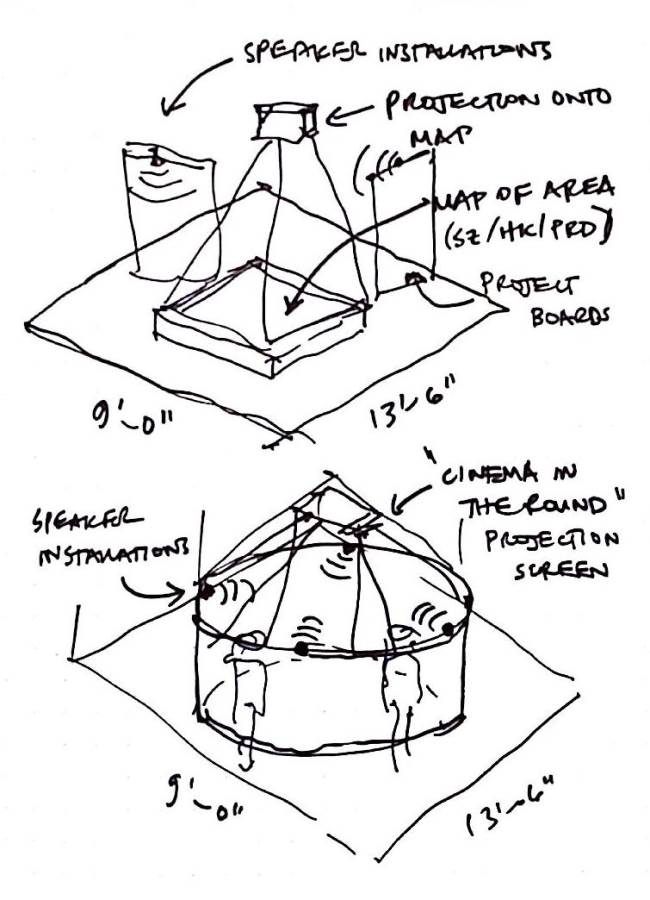 SPEAKER INSTALLATIONS
PROJECTION ONTO
MAP
MAP OF AREA
(SZ/HK/PRD)
PROJECT
BOARDS
9'-0"
13'-6"
"CINEMA IN
THE ROUND"
PROJECTION
SCREEN
SPEAKER
INSTALLATIONS
9'-0"
13'-6"